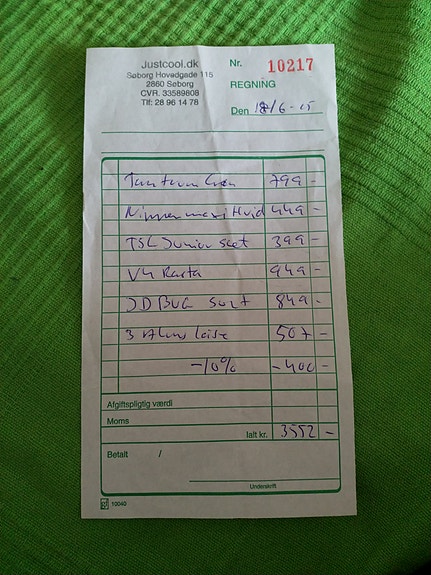 Justcool.dk
Søborg Hovedgade 115
2860 Søborg
CVR. 33589808
Tlf: 28 96 14 78
Nr. 10217
REGNING
Den 18/6-15
799-
Maxi Hvid 449-
TSL Junior sæt 399-
V4 Rasta 949-
JD BUG sort 849-
3 507-
-10% -400-
Afgiftspligtig værdi
Moms
Ialt kr. 3552-
Betalt /
Underskrift
gl 10040